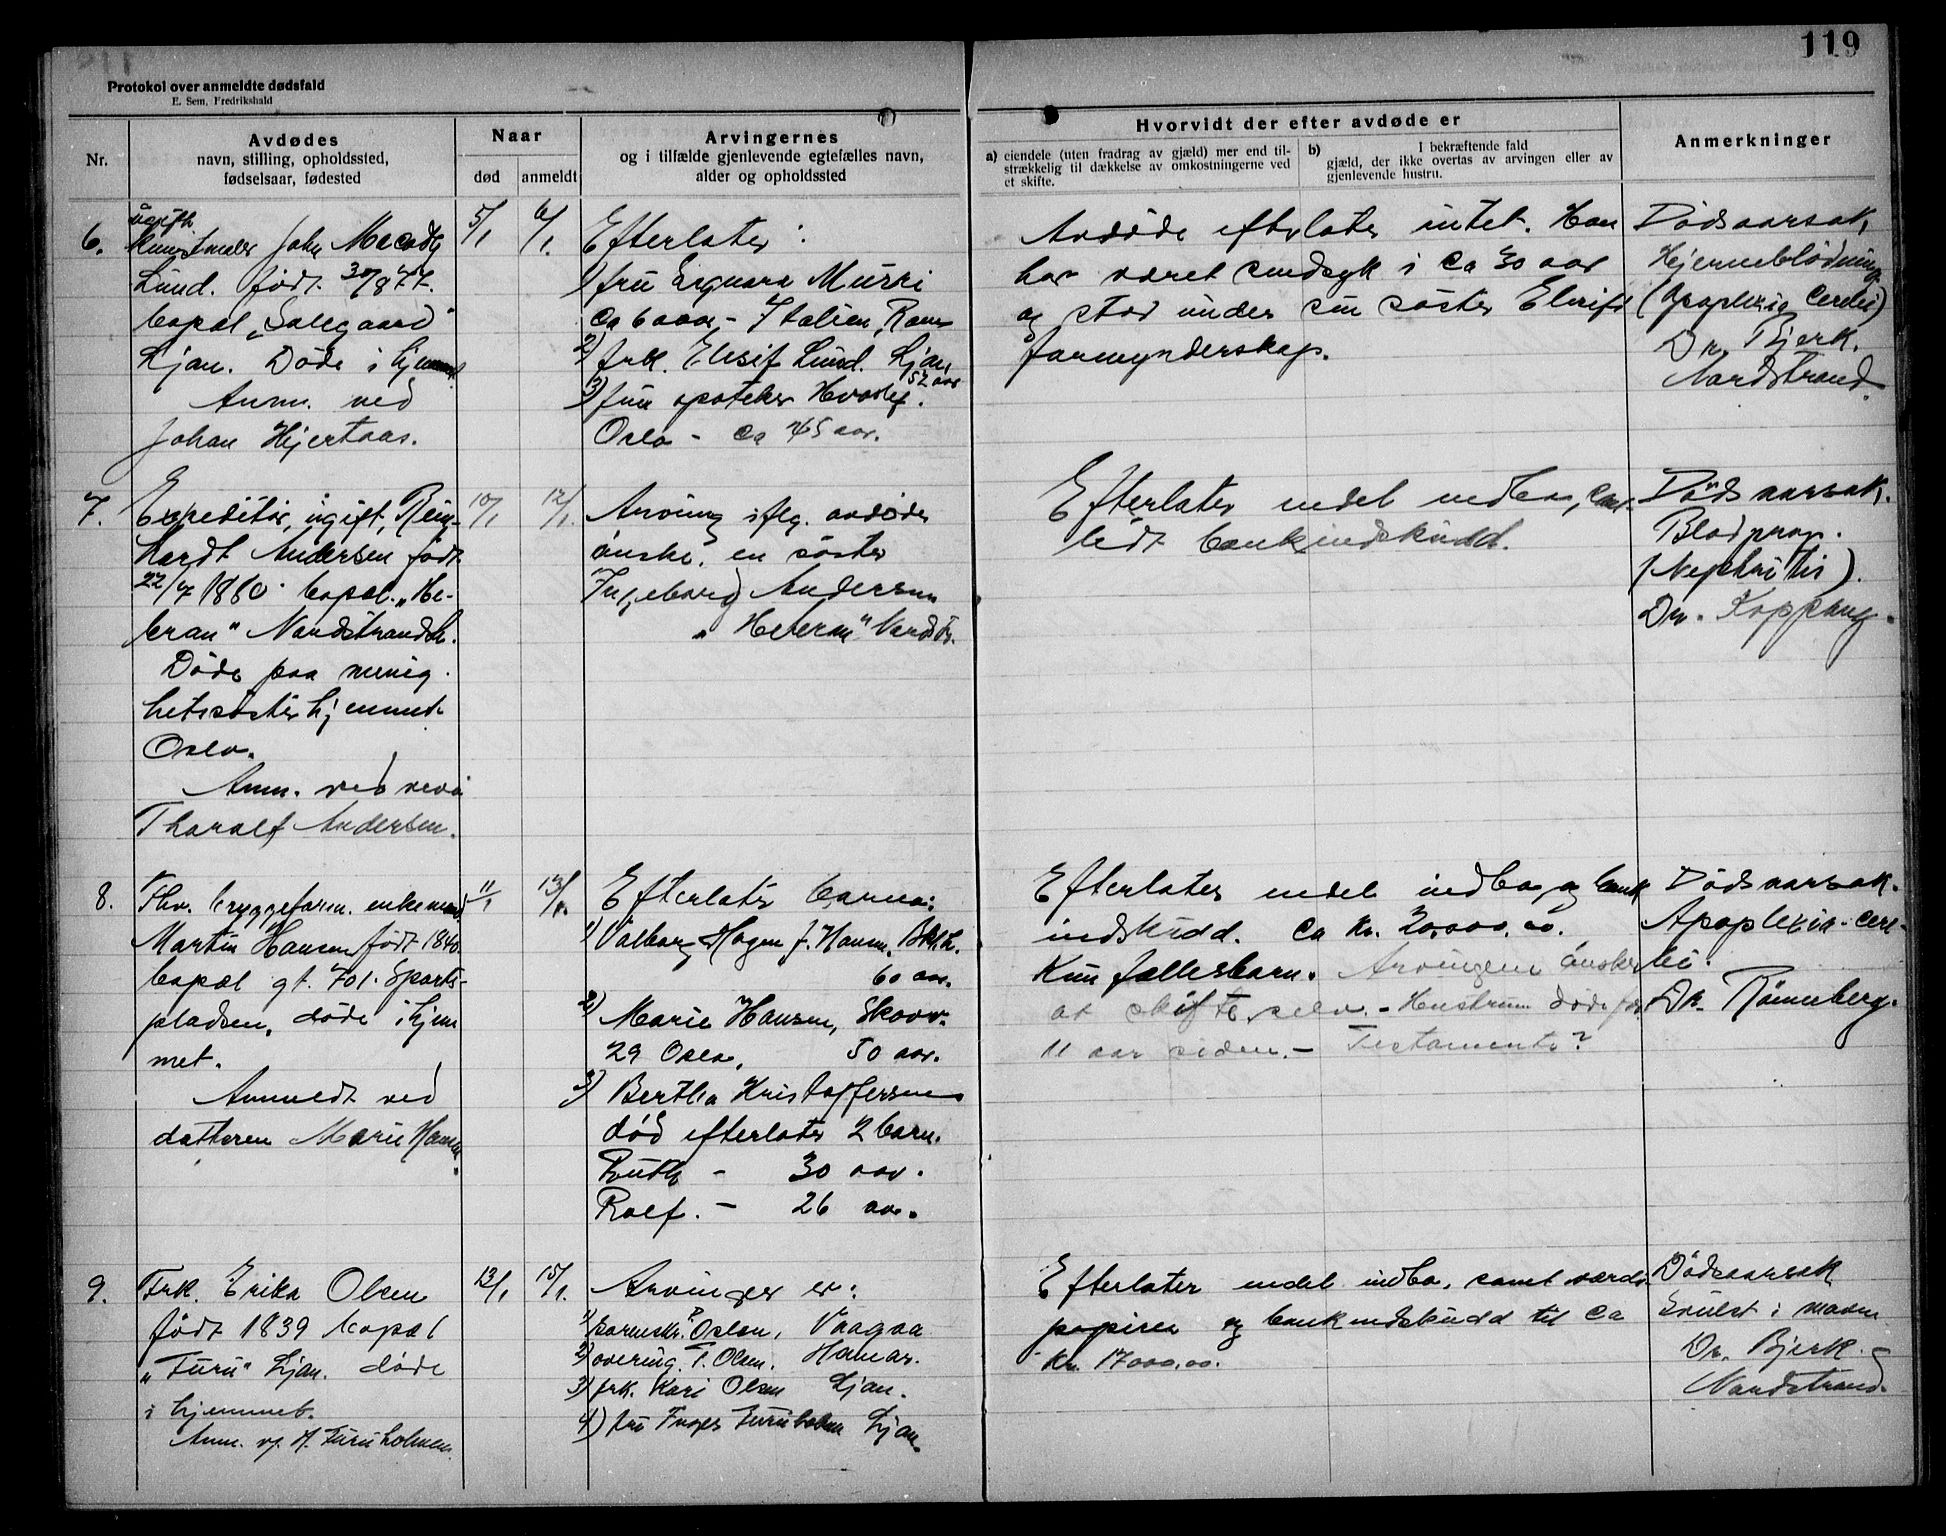 119
Protokol over anmeldte dødsfald
E. Sem, Fredrikshald
Nr.
Avdødes
navn, stilling, opholdssted,
fødselsaar, fødested
Naar
død
anmeldt
Arvingernes
og i tilfælde gjenlevende egtefælles navn,
alder og opholdssted
Hvorvidt der efter avdøde er
a) eiendele (uten fradrag av gjæld) mer end til-
strækkelig til dækkelse av omkostningerne ved
et skifte.
b) I bekræftende fald
gjæld, der ikke overtas av arvingen eller av
gjenlevende hustru.
Anmerkninger
6.
ugift
kunstmaler John Macody
Lund. født 30/
bopæl „Solegaard"
Ljan. Døde i hjemmet
Anm. ved
Johan Hjertaas.
5/1
6/1.
Efterlater:
1) fru Murri
ca 60 aar, - Italien, Rom
2) frk. Elisif Lund. Ljan,
52 aar
3) fru apoteker Hvoslef.
Oslo - ca 45 aar.
Avdøde efterlater intet. Han
har været sindsyk i ca 30 aar
og stod under sin søster Elisifs
formynderskap.
Dødsaarsak,
Hjerneblødning
(Apoplexia Cerebri)
Dr. Bjerk.
Nordstrand.
7.
Expeditør, ugift, Rein-
hardt Andersen født
22/7 1860. bopæl. „He-
bron" Nordstrandsh.
Døde paa menig-
hetssøsterhjemmet
Oslo.
Anm. ved nevø
Tharalf Andersen.
10/1
12/1.
Arving iflg. avdødes
ønske, en søster
Ingeborg Andersen
„Hebron" Nordstr.
Efterlater endel indbo, samt
lidt bankindskudd.
Dødsaarsak.
Blodprop.
(Nephritis).
Dr. Koppang.
8.
Fhv. bryggeform. enkemand
Martin Hansen født 1840.
bopæl gt. 701. Sports-
pladsen, døde i hjem
met.
Anmeldt ved
datteren Marie Hansen.
11/1
13/1.
Efterlater barn:
1) Valborg Hagen f. Hansen, Bkl.h.
60 aar.
2) Marie Hansen, Skovv.
29 Oslo, 50 aar.
3) Bertha Kristoffersen
død efterlater 2 barn.
Ruth - 30 aar.
Rolf. - 26 aar.
Efterlater endel indbo og bank
indskudd. Ca kr. 20.000.00.
Kun fællesbarn. Arvingene ønsker
at skifte selv. - Hustruen døde for
11 aar siden. - Testamente?
Dødsaarsak.
Apoplexia cere-
bri.
Dr. Rønneberg.
9.
Frk. Erika Olsen
født 1839 bopæl
„Furu" Ljan. døde
i hjemmet.
Anm. v. H. Furuholmen.
13/1
15/1.
Arvinger er:
1) Olsen, Vaagaa
2) overing. T. Olsen. Hamar.
3) frk. Kari Olsen Ljan.
4) fru Inger Furuholmen Ljan.
Efterlater endel indbo, samt værdi
papirer og bankindskudd til ca
kr. 17000.00.
Dødsaarsak
Svulst i maven
Dr. Bjerk.
Nordstrand.